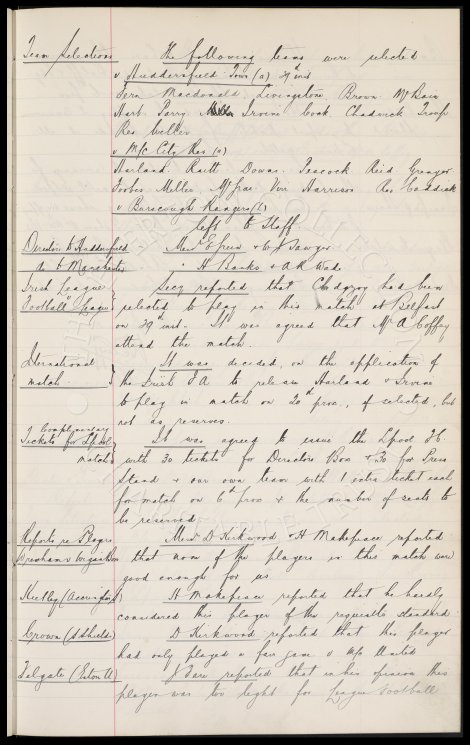 Team Selections The following teams were selected
v Huddersfield Town (a) 27th inst
Fern Macdonald Livingstone Brown McBain
Hart Parry Irvine Cook Chadwick Troup
Res Weller
v M/c City Res (a)
Harland Raitt Downs Peacock Reid Grenyer
Forbes Miller Harrison Res
v Burscough Rangers (h)
left to Staff.
Directors to Huddersfield Messrs E Green & W J Sawyer
do to Manchester " H Banks & A R Wade
Irish League Secy reported that Chedgzoy had been
Football League selected to play in this match at Belfast
on 29th inst. It was agreed that Mr A Coffey
attend the match.
International It was decided, on the application of
match the Irish F A to release Harland & Irvine
to play in match on 20th prox, if selected, but
not as reserves.
Complimentary
Tickets for L'pool It was agreed to issue the L'pool F.C.
match with 30 tickets for Directors Box & 30 for Press
Stand & our own team with 1 extra ticket each
for match on 6th prox & the number of seats to
be reserved.
Reports re Players Messrs D Kirkwood & H Makepeace reported
that none of the players in this match were
good enough for us
Keetley (Accrington) H Makepeace reported that he hardly
considered this player of the requisite standard.
Crown (S Shields) D Kirkwood reported that this player
had only played a fair game v M/c United
Felgate (Luton U) J Dare reported that in his opinion this
player was too light for League Football